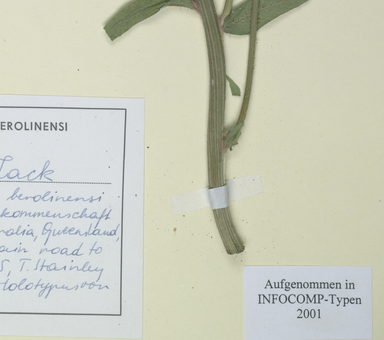 EROLINENSI
Jack
berolinensi
kommenschaft
ralia, Queensland,
ain road to
S, T. Stainley
Holotypus von
Aufgenommen in
INFOCOMP-Typen
2001